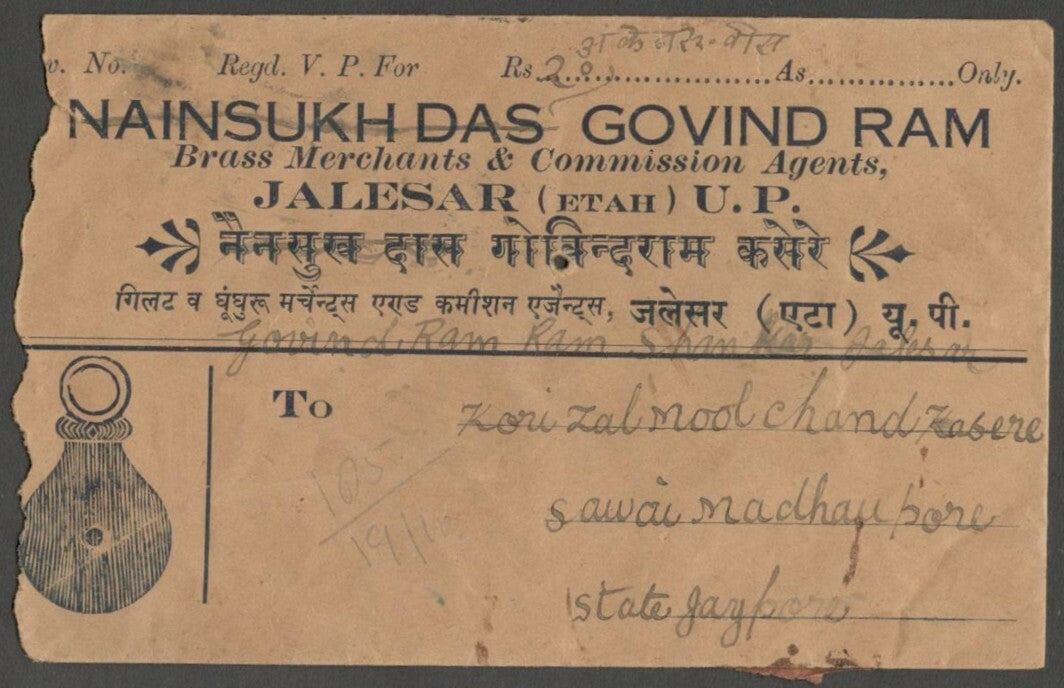 अंके रु. बीस
v. No. Regd. V. P. For Rs 20 As Only.
NAINSUKH DAS GOVIND RAM
Brass Merchants & Commission Agents,
JALESAR (ETAH) U. P.
नैनसुख दास गोविन्दराम कसेरे
गिलट व घूंघुरू मर्चेन्ट्स एण्ड कमीशन एजैन्ट्स, जलेसर (एटा) यू. पी.
Govind Ram Ram Shankar
To
Kori Zal Mool Chand Kasere
Sawai Madhaupore
State Jaypore
105
19/10